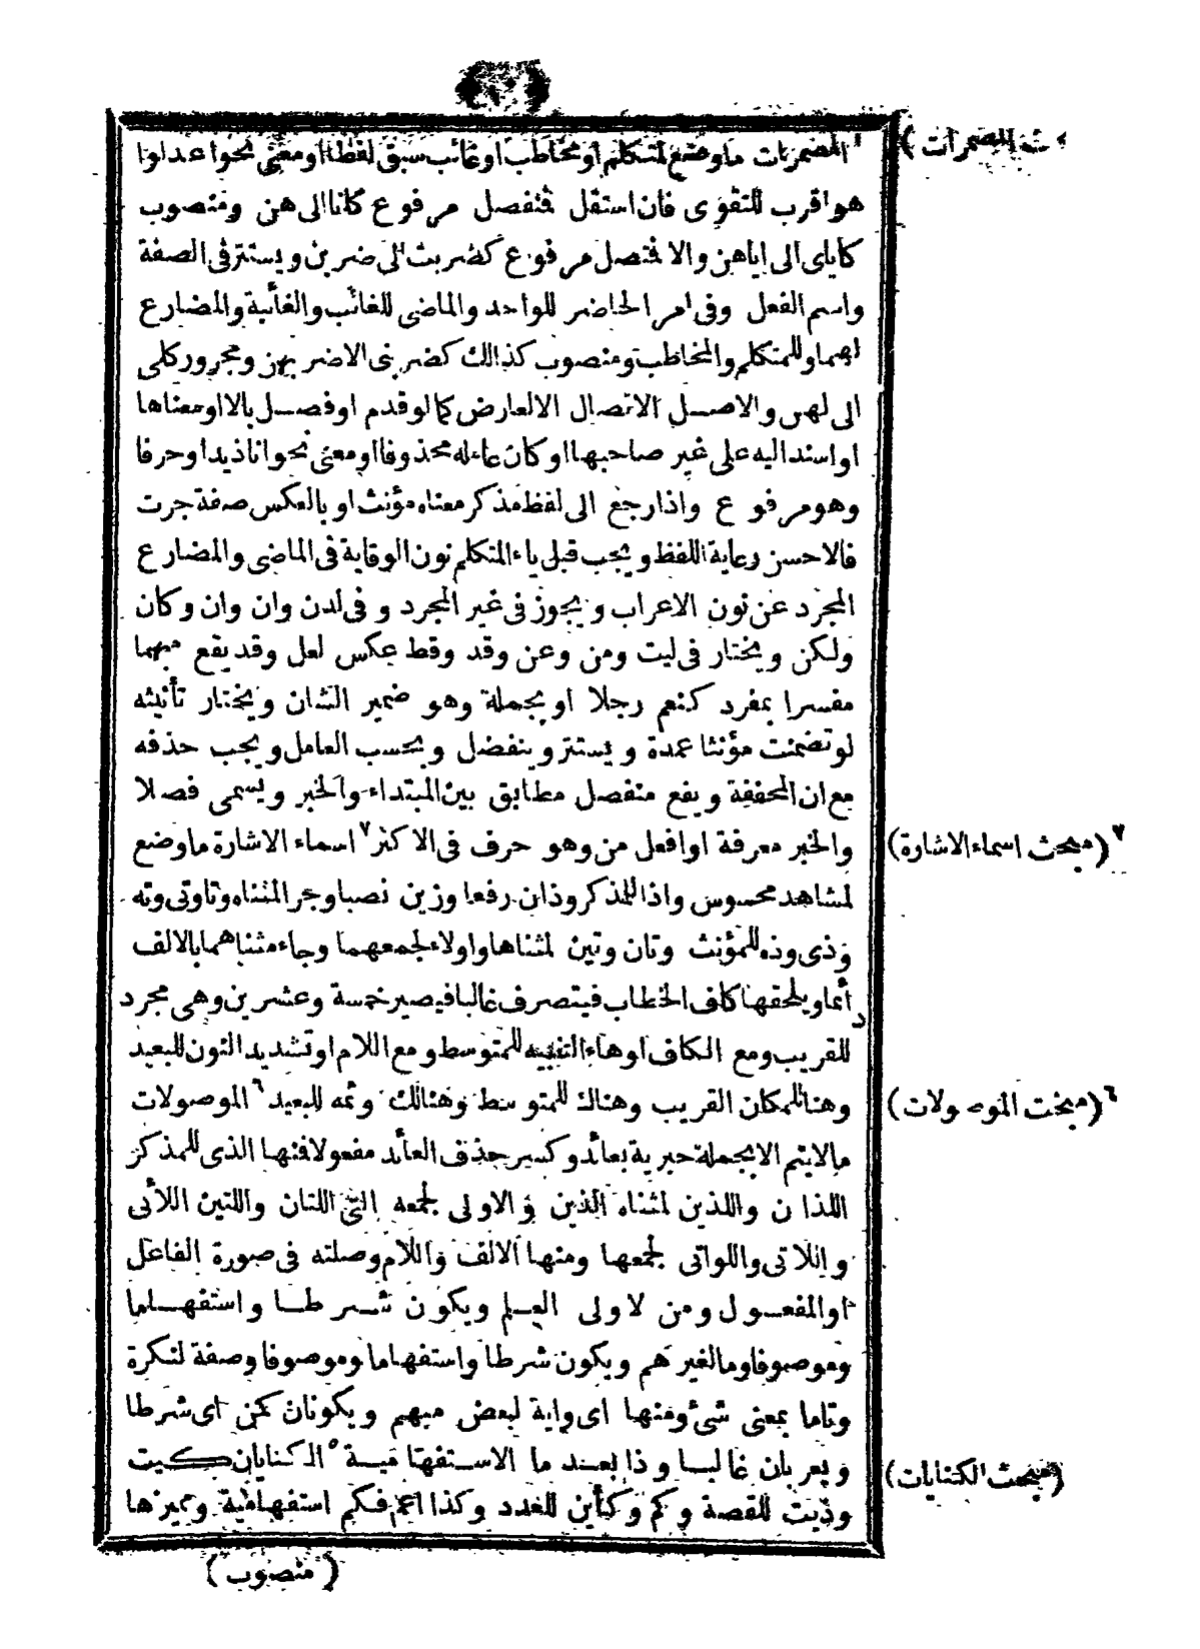 المضمرات ما وضع لمتكلم او مخاطب او غائب سبق لفظا او معنى نحو اعدلوا
هو اقرب للتقوى فان استقل فنفصل مرفوع كانا الى هن ومنصوب
كاياى الى اياهن والا فتصل مرفوع كضربت الى ضربن ويستتر فى الصفة
واسم الفعل وفى امر الحاضر للواحد والماضى للغائب والغائبة والمضارع
لهما وللمتكلم والمخاطب ومنصوب كذالك كضربنى الاضربهن ومجرور كلى
الى لهن والاصل الاتصال الالعارض كما لو قدم او فصل بالا او معناها
او اسند اليه على غير صاحبها او كان عامله محذوفا او معنى نحو انا ذيد او حرفا
وهو مرفوع واذا رجع الى لفظ مذكر معناه مؤنث او بالعكس صفة جرت
فالاحسن رعاية اللفظ ويجب قبل ياء المتكلم نون الوقاية فى الماضى والمضارع
المجرد عن نون الاعراب ويجوز فى غير المجرد وفى لدن وان وان وكان
ولكن ويختار فى ليت ومن وعن وقد وقط عكس لعل وقد يقع مبهما
مفسرا بمفرد كنعم رجلا او بجملة وهو ضمير الشان ويختار تأنيثه
لو تضمنت مؤنثا عمدة ويستتر وينفضل وبحسب العامل ويجب حذفه
مع ان المحففة ويقع منفصل مطابق بين المبتداء والخبر ويسمى فصلا
والخبر معرفة او افعل من وهو حرف فى الاكثر ٧ اسماء الاشارة ما وضع
٧ (مبحث اسماء الاشارة)
لمشاهد محسوس واذا للمذكر وذان رفعا وزين نصبا وجر المثناه وتا وتى وته
وذى وذه للمؤنث وتان وتين لمثناها واولاء لجمعهما وجاء مثناهما بالالف
دأئما ويلحقها كاف الخطاب فيتصرف غالبا فيصير خمسة وعشرين وهى مجرد
للقريب ومع الكاف او هاء التنبيه للمتوسط ومع اللام او تشديد النون للبعيد
وهنا للمكان القريب وهناك للمتوسط وهنالك وثمه للبعيد ٦ الموصولات
٦ (مبخت الموصولات)
ما لايتم الا بجملة حبرية بعائد وكثير حذف العائد مفعولا فنها الذى للمذكر
اللذان واللذين لمثناه الذين والاولى لجمعه التى اللتان واللتين اللأتى
واللاتى واللواتى لجمعها ومنها الالف واللام وصلته فى صورة الفاعل
او المفعول ومن لاولى العلم ويكون شرطا واستفهاما
وموصوفا وما لغيرهم ويكون شرطا واستفهاما وموصوفا وصفة لنكرة
وتاما بمعنى شئ ومنها اى واية لبعض مبهم ويكونان كمن اى شرطا
ويعربان غالبا وذا بعد ما الاستفهامية ٥ الكنايان كيت
(مبحث الكنايات)
وذيت للقصة وكم وكأين للعدد وكذا اعم فكم استفهامية ومميزها
(منصوب)